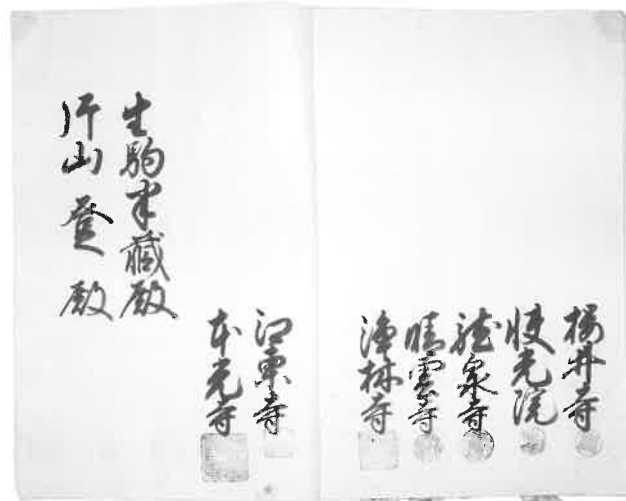 桜井寺
快光院
龍泉寺
晴雲寺
浄林寺
江東寺
本光寺
生駒半蔵殿
片山登殿